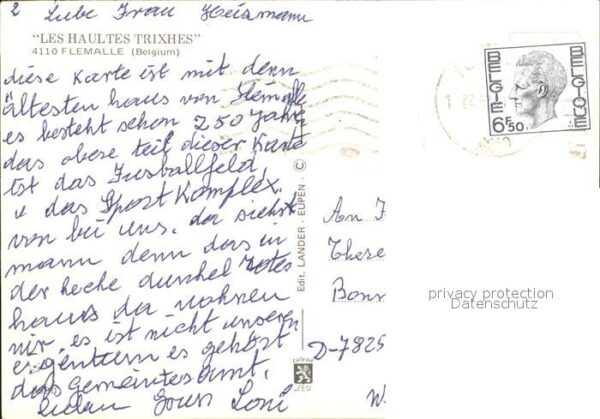 2 Liebe Frau Heismann
"LES HAULTES TRIXHES"
4110 FLEMALLE (Belgium)
diese Karte ist mit denn
ältesten haus von Flémalle
es besteht schon 250 Jahre
das obese teil dieser Karte
ist das Fusballfeld,
+ das Sport Komplex.
von bei uns. da siehst
mann denn das in
der hoche dunkel rotes
haus da wohnen
wir, es ist nicht unser
eigentum es gehört
das Gemeintesamt.
Loni
Edit. LANDER - EUPEN ©
BELGIE BELGIQUE
6F50
An F
There
Bonn
D-7825
W
privacy protection
Datenschutz